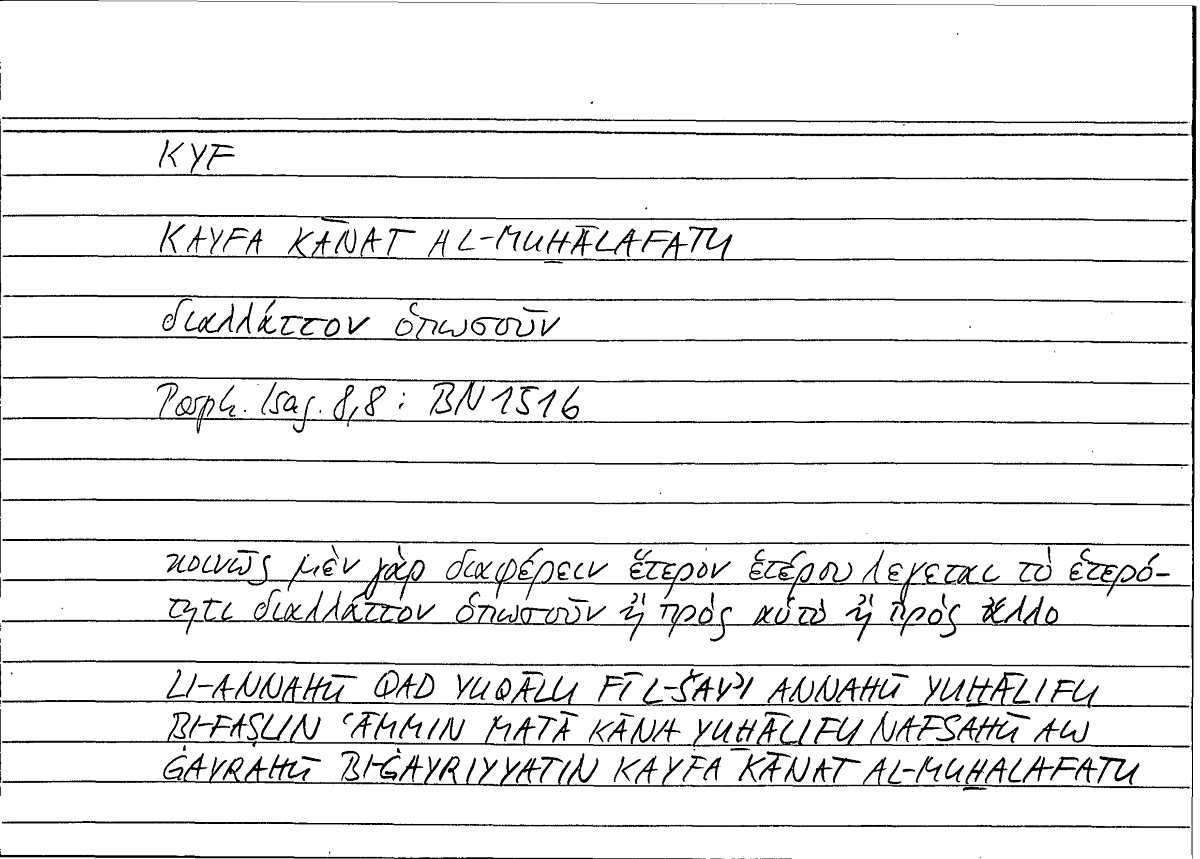 KYF
KAYFA KĀNAT AL-MUḪĀLAFATU
διαλλάττον ὁπωσοῦν
Porph. Isag. 8,8 : BN 1516
κοινῶς μὲν γὰρ διαφέρειν ἕτερον ἑτέρου λεγεται τὸ ἑτερό-
τητι διαλλάττον ὁπωσοῦν ἢ πρὸς αὑτὸ ἢ πρὸς ἄλλο
LI-ANNAHŪ QAD YUQĀLU FĪ L-ŠAYʾI ANNAHŪ YUḪĀLIFU
BI-FAṢLIN ʿĀMMIN MATĀ KĀNA YUḪĀLIFU NAFSAHŪ AW
ĠAYRAHŪ BI-ĠAYRIYYATIN KAYFA KĀNAT AL-MUḪALAFATU